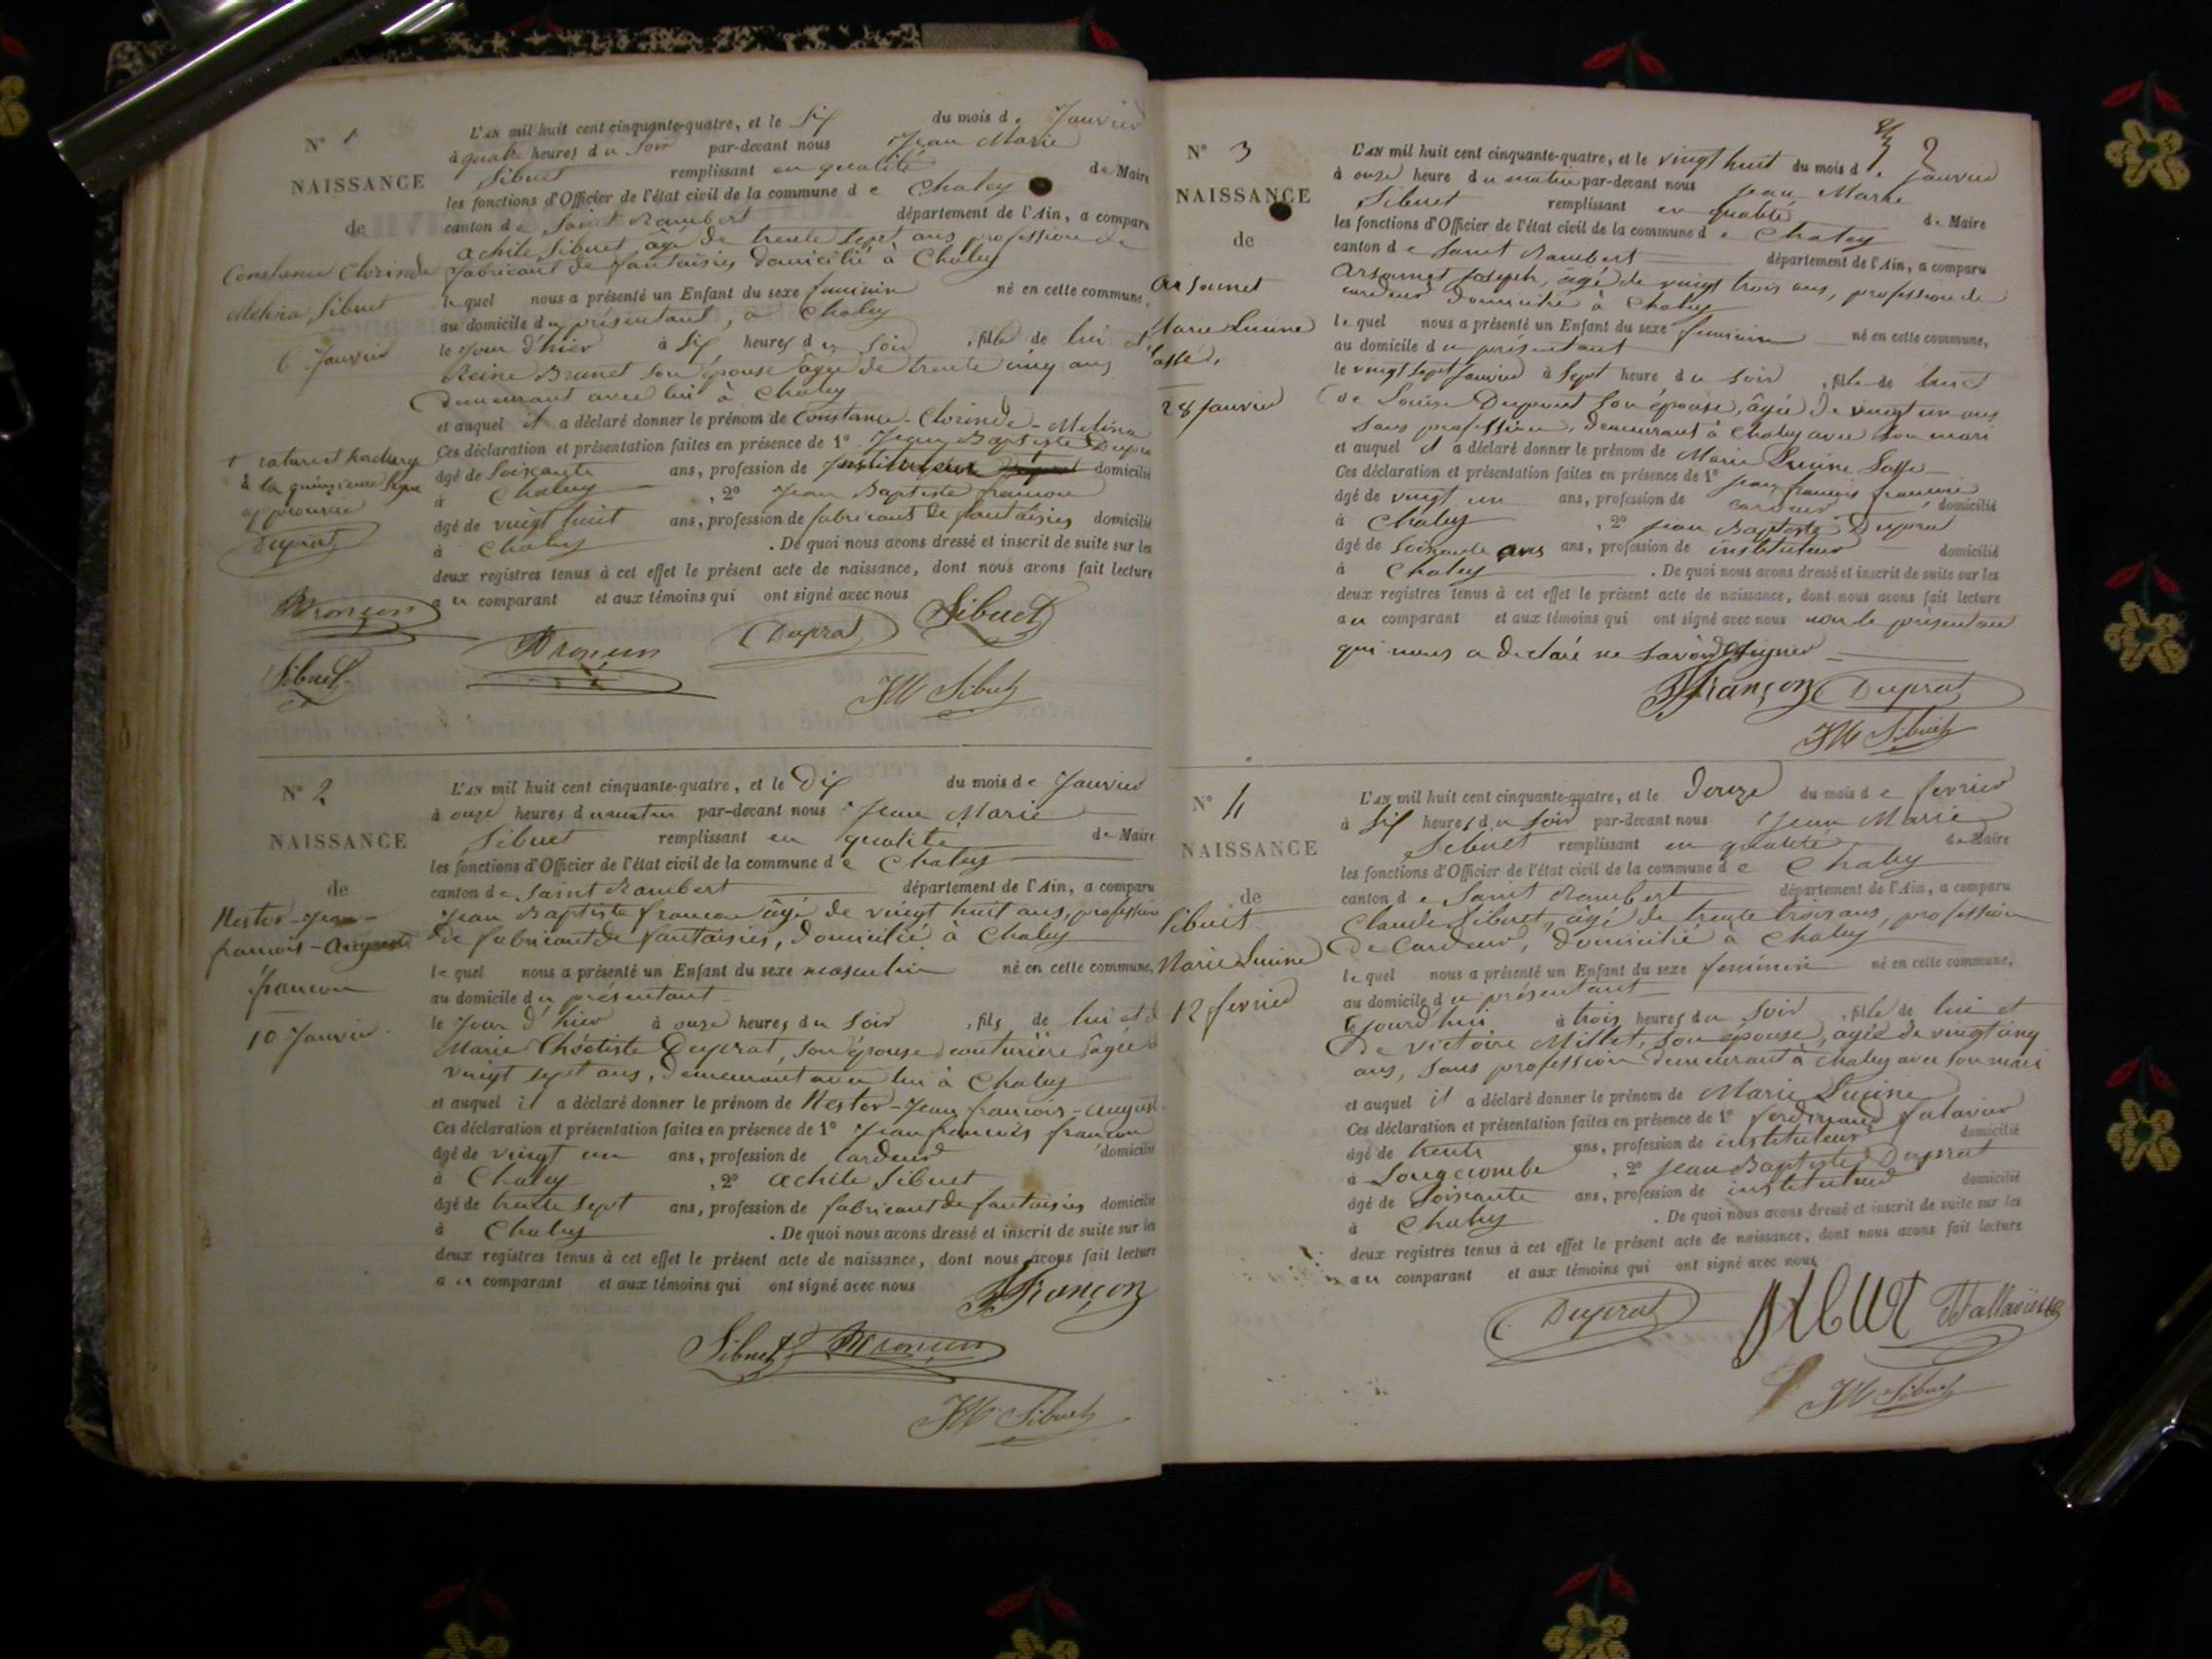 N° 1
NAISSANCE
de
Constance Clorinde
Melina Sibuet
6 Janvier
L'AN mil huit cent cinquante-quatre, et le Six du mois de Janvier
à quatre heures du Soir par-devant nous Jean Marie
Sibuet remplissant en qualité de Maire
les fonctions d'Officier de l'état civil de la commune de Chaley
canton de Saint Rambert département de l'Ain, a comparu
achile Sibuet âgé de trente sept ans profession de
fabricant de fantaisies domicilié à Chaley
lequel nous a présenté un Enfant du sexe feminin né en cette commune,
au domicile du présentant, à Chaley
le Jour d'hier à Six heures du Soir, fille de lui et
Reine Brunet son épouse âgée de trente cinq ans
demeurant avec lui à Chaley
et auquel il a déclaré donner le prénom de Constance-Clorinde-Melina
Ces déclaration et présentation faites en présence de 1° Jean Baptiste Dupra
âgé de Soixante ans, profession de Instituteur domicilié
à Chaley, 2° Jean Baptiste francon
âgé de vingt huit ans, profession de fabricant de fantaisies domicilié
à Chaley. De quoi nous avons dressé et inscrit de suite sur les
deux registres tenus à cet effet le présent acte de naissance, dont nous avons fait lecture
au comparant et aux témoins qui ont signé avec nous
rature et surcharge
à la quinzieme ligne
approuvée
Duprat
Sibuet
Duprat
Sibuet
JM Sibuet
N° 2
NAISSANCE
de
Nestor-Jean-
francois-Auguste
francon
10 Janvier
L'AN mil huit cent cinquante-quatre, et le Dix du mois de Janvier
à onze heures du matin par-devant nous Jean Marie
Sibuet remplissant en qualité de Maire
les fonctions d'Officier de l'état civil de la commune de Chaley
canton de Saint Rambert département de l'Ain, a comparu
Jean Baptiste francon âgé de vingt huit ans, profession
de fabricant de fantaisies, domicilié à Chaley
lequel nous a présenté un Enfant du sexe masculin né en cette commune,
au domicile du présentant
le Jour d'hier à onze heures du Soir, fils de lui et d
Marie Théotiste Duprat, son épouse couturière âgée d
vingt sept ans, demeurant avec lui à Chaley
et auquel il a déclaré donner le prénom de Nestor-Jean francois-August
Ces déclaration et présentation faites en présence de 1° Jean francois francon
âgé de vingt un ans, profession de Cardeur domicilié
à Chaley, 2° achile Sibuet
âgé de trente sept ans, profession de fabricant de fantaisies domicilié
à Chaley. De quoi nous avons dressé et inscrit de suite sur les
deux registres tenus à cet effet le présent acte de naissance, dont nous avons fait lecture
au comparant et aux témoins qui ont signé avec nous
françon
Sibuet
JM Sibuet
2
N° 3
NAISSANCE
de
Arsonnet
Marie Lucine
Lasse,
28 Janvier
L'AN mil huit cent cinquante-quatre, et le vingt huit du mois de Janvier
à onze heure du matin par-devant nous Jean Marie
Sibuet remplissant en qualité de Maire
les fonctions d'Officier de l'état civil de la commune de Chaley
canton de Saint Rambert département de l'Ain, a comparu
Arsonnet Joseph, âgé de vingt trois ans, profession de
cardeur domicilié à Chaley
lequel nous a présenté un Enfant du sexe feminin né en cette commune,
au domicile du présentant
le vingt Sept Janvier à Sept heure du Soir, fille de lui et
de Louise son épouse, âgée de vingt un ans
Sans profession, demeurant à Chaley avec Son mari
et auquel il a déclaré donner le prénom de Marie Lucine Lasse
Ces déclaration et présentation faites en présence de 1° Jean francois francon
âgé de vingt un ans, profession de cardeur domicilié
à Chaley, 2° Jean Baptiste Duprat
âgé de Soixante ans ans, profession de instituteur domicilié
à Chaley. De quoi nous avons dressé et inscrit de suite sur les
deux registres tenus à cet effet le présent acte de naissance, dont nous avons fait lecture
au comparant et aux témoins qui ont signé avec nous non le présentant
qui nous a déclaré ne Savoir Signer
françon Duprat
JM Sibuet
N° 4
NAISSANCE
de
Sibuet
Marie Lucine
12 fevrier
L'AN mil huit cent cinquante-quatre, et le Douze du mois de fevrier
à Six heures du Soir par-devant nous Jean Marie
Sibuet remplissant en qualité de Maire
les fonctions d'Officier de l'état civil de la commune de Chaley
canton de Saint Rambert département de l'Ain, a comparu
Claude Sibuet, âgé de trente trois ans, profession
de Cardeur, domicilié à Chaley
lequel nous a présenté un Enfant du sexe feminin né en cette commune,
au domicile du présentant
le jourd'hui à trois heures du Soir, fille de lui et
de Victoire Millet, son épouse, âgée de vingt cinq
ans, Sans profession demeurant à Chaley avec Son mari
et auquel il a déclaré donner le prénom de Marie Lucine
Ces déclaration et présentation faites en présence de 1° ferdinand
âgé de trente ans, profession de instituteur domicilié
à Longecombe, 2° Jean Baptiste Duprat
âgé de Soixante ans, profession de instituteur domicilié
à Chaley. De quoi nous avons dressé et inscrit de suite sur les
deux registres tenus à cet effet le présent acte de naissance, dont nous avons fait lecture
au comparant et aux témoins qui ont signé avec nous
Duprat Sibuet
JM Sibuet